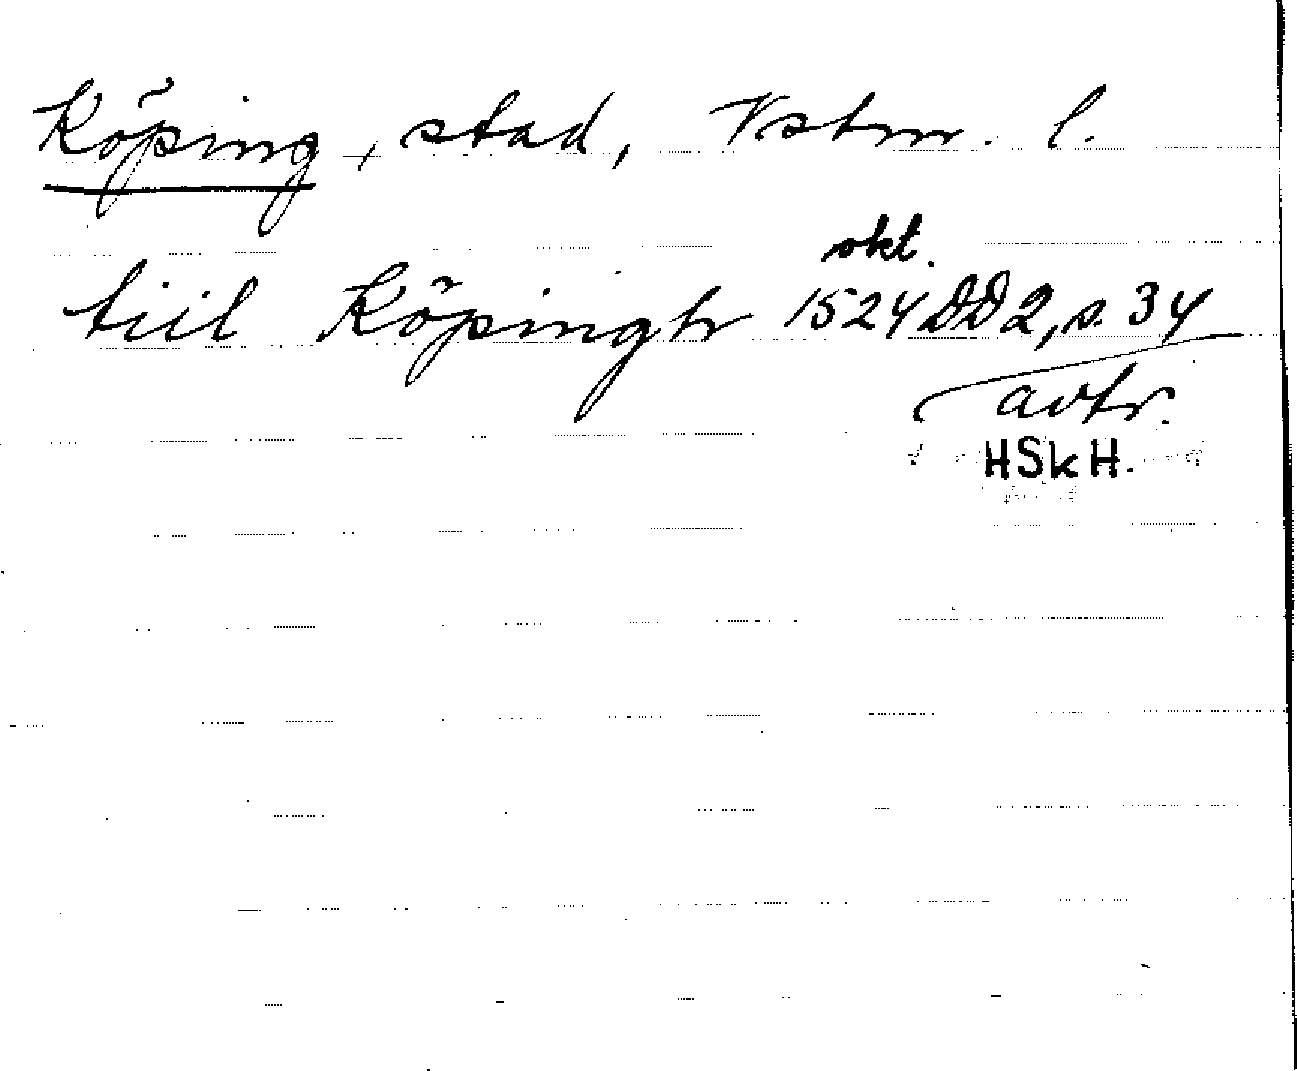 Köping, stad, Vstm. l.
okt.
tiil Köpingh 1524 DD2, s. 34
avtr.
HSkH.